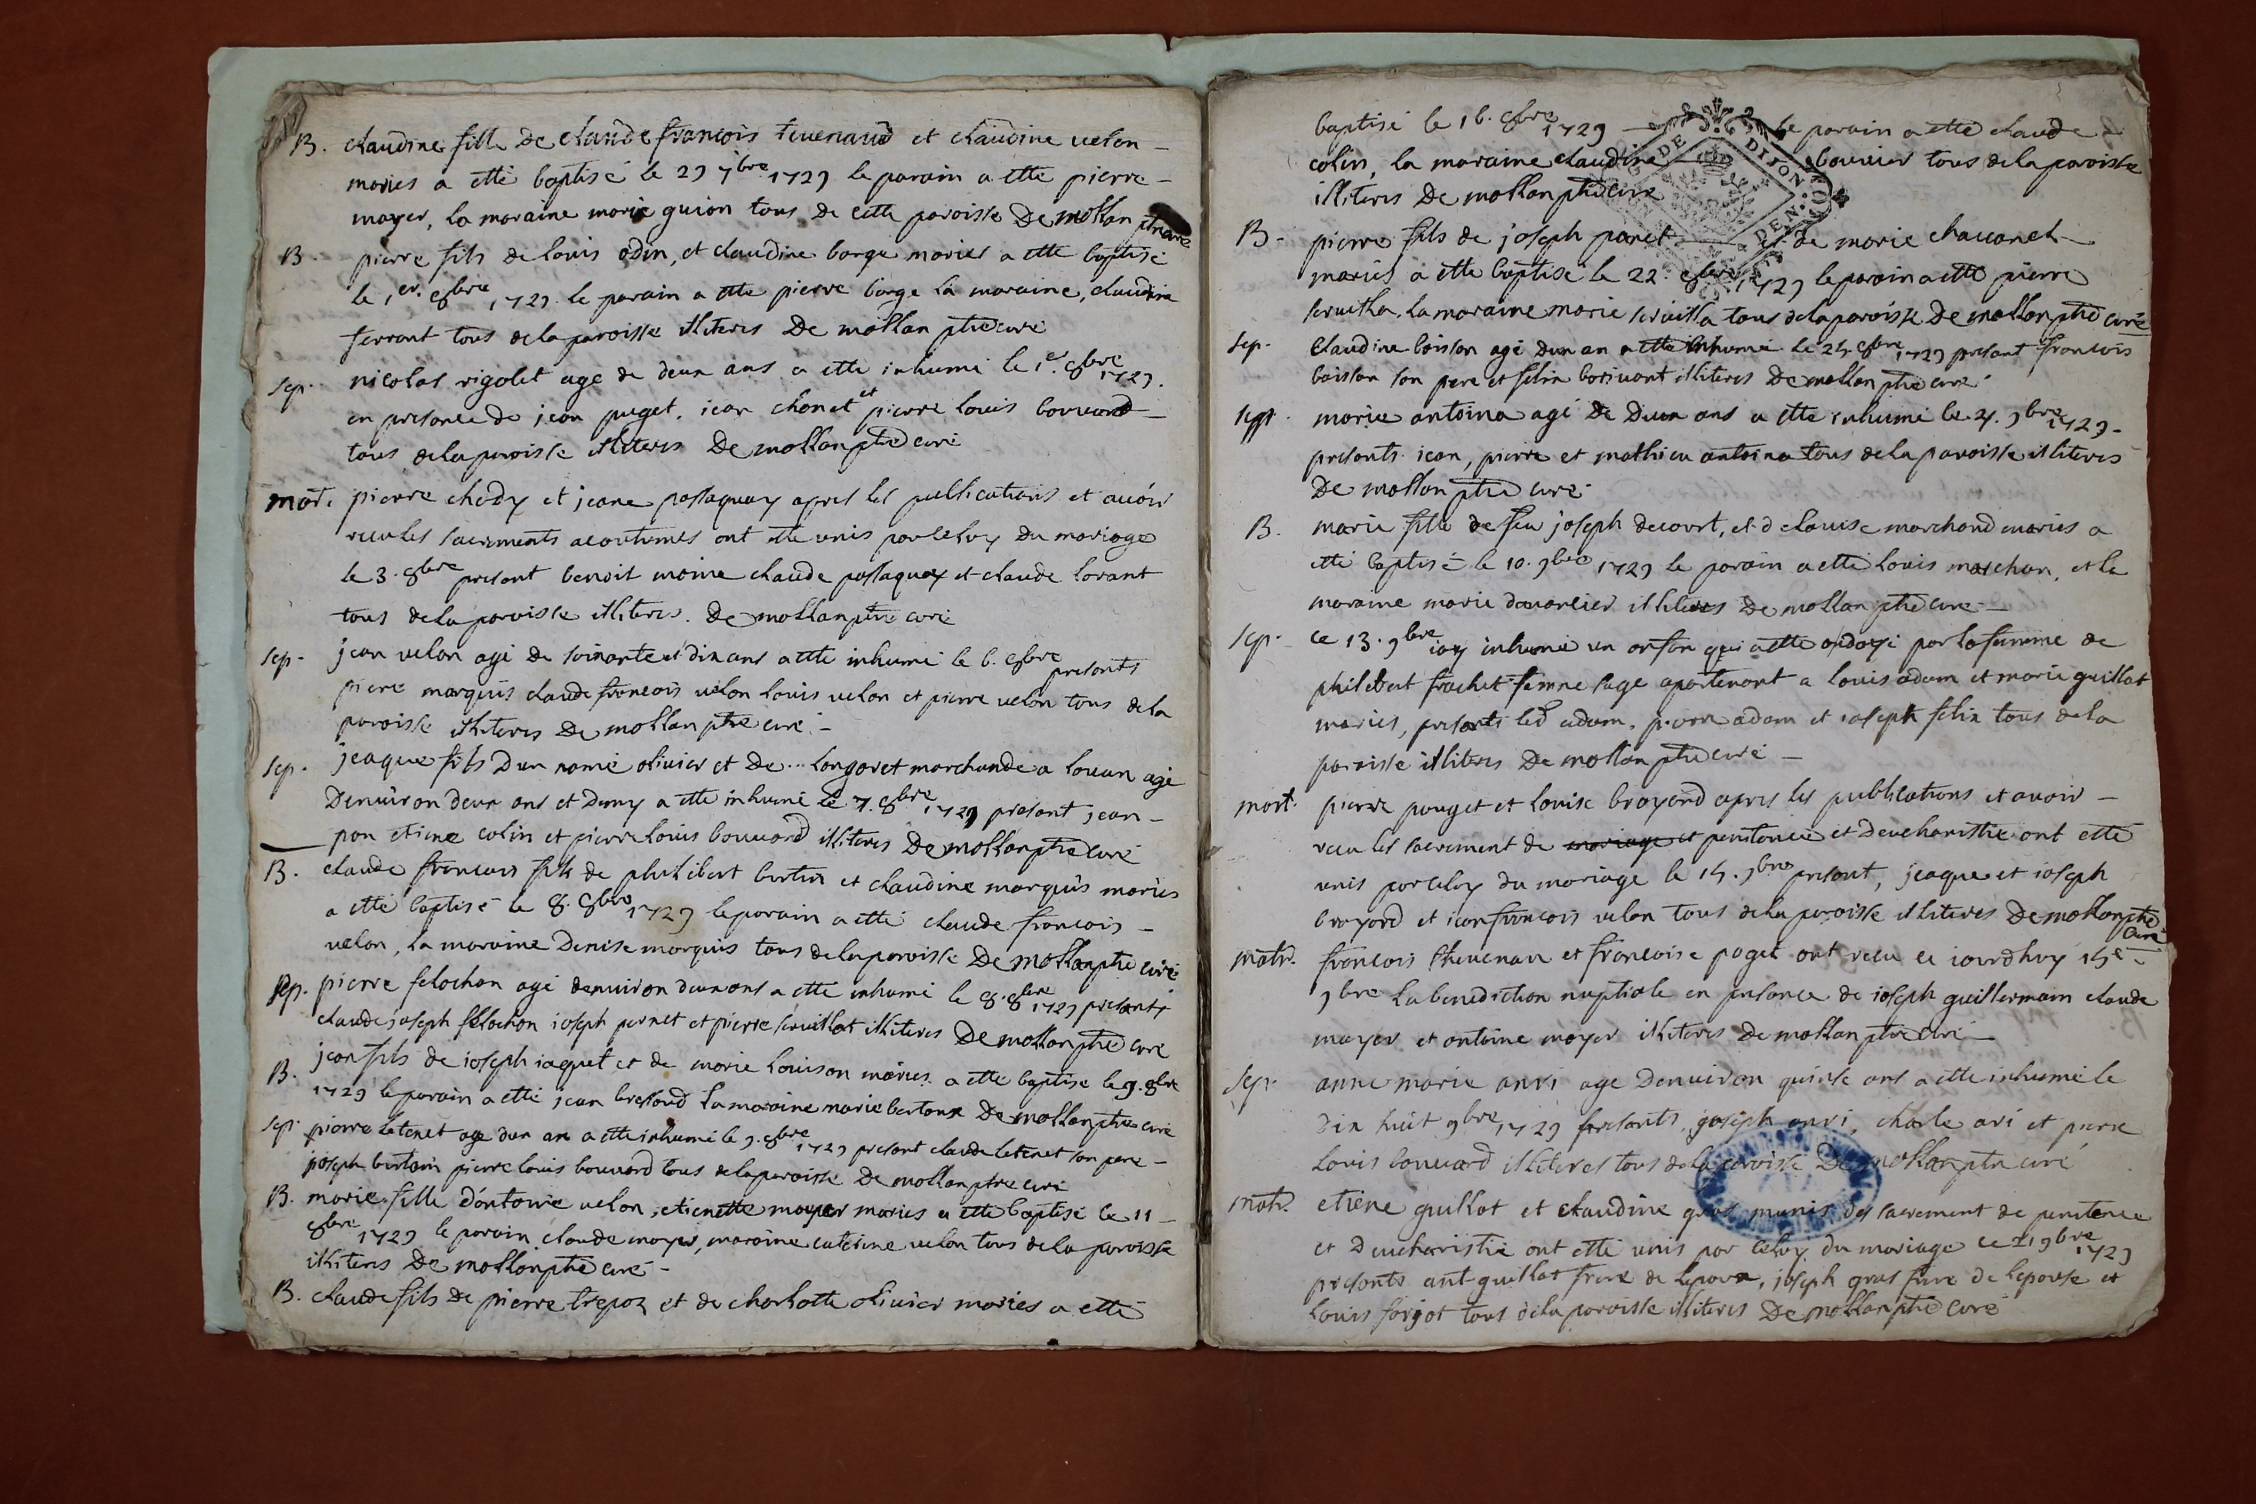 B. claudine fille De claude françois tevenaud et claudine velon -
mariés a etté baptisé le 29 7bre 1729 le parain a etté pierre -
mayer, la maraine marie guion tous de cette paroisse De mollan ptre curé
B. pierre fils de louis odin, et claudine barge mariés a etté baptisé
le 1er. 8bre 1729. le parain a etté pierre barge la maraine, claudine
ferrant tous de la paroisse illiteres De mollan ptre curé
sep. nicolas rigolet agé de deux ans a etté inhumé le 1er. 8bre 1729.
en presance de jean puget, jean chonet et pierre louis bouvard -
tous de la paroisse illiteres De mollan ptre curé
mar. pierre chody et jeane passaquay apres les publications et avoir
receu les sacrements acoutumés ont etté unis par celuy du mariage
le 3. 8bre presant benoit moine claude passaquay et claude lorant
tous de la paroisse illiteres. De mollan ptre curé
sep. jean velon agé de soixante et dix ans a etté inhumé le 6. 8bre presants
piere marquis claude francois velon louis velon et pierre velon tous de la
paroisse illiteres De mollan ptre curé -
sep. jeaque fils D'un nomé olivier et De ... longoret marchande a louan agé
Denviron deux ans et Demy a etté inhumé le 7. 8bre 1729 presant jean -
pon etiene colin et pierre louis bouvard illiteres De mollan ptre curé
B. claude francois fils de philibert bertin et claudine marquis mariés
a etté baptisé le 8. 8bre 1729 le parain a etté claude francois -
velon, la maraine Denise marquis tous de la paroisse De mollan ptre curé
sep. pierre felochon agé denviron deux ans a etté inhumé le 8. 8bre 1729 presants
claude joseph felochon joseph pernet et pierre servillat illiteres De mollan ptre curé
B. jean fils de joseph jaquet et de marie louison mariés a etté baptisé le 9. 8bre
1729 le parain a etté jean bressoud la maraine marie bertoux De mollan ptre curé
sep. pierre letenet agé d'un an a etté inhumé le 9. 8bre 1729 presant claude letenet son pere -
joseph bertain pierre louis bouvard tous de la paroisse De mollan ptre curé
B. marie fille d'antoine velon, etienette mayer mariés a etté baptisé le 11 -
8bre 1729 le parain claude mayer, maraine caterine velon tous de la paroisse
illiteres De mollan ptre curé -
B. claude fils de pierre trepoz et de charlotte olivier mariés a etté
baptisé le 16. 8bre 1729 - le parain a etté claude
colin, la maraine claudine bouvier tous de la paroisse
illiteres De mollan ptre curé
G DE DIJON DEN.
B - pierre fils de joseph panet et de marie chaccanet -
mariés a etté baptisé le 22. 8bre 1729 le parain a etté pierre
servilla, la maraine marie servilla tous de la paroisse De mollan ptre curé
sep. claudine boisson agé d'un an a etté inhumé le 25 8bre 1729 presant francois
boisson son pere et felix borivant illiteres De mollan ptre curé
sept. marie antoina agé De Deux ans a etté inhumé le 4. 9bre 1729 -
presants jean, pierre et mathieu antoina tous de la paroisse illiteres
De mollan ptre curé
B. marie fille de feu joseph decourt, et d elouise marchand mariés a
etté baptisé le 10. 9bre 1729 le parain a etté louis marchan, et la
maraine marie davarlier illiteres De mollan ptre curé -
sep. ce 13. 9bre jay inhumé un anfan qui a etté ondoyé par la femme de
philibert frachet femne sage apartenant a louis adam et marie guillot
mariés, presants led adam, pierre adam et joseph felix tous de la
paroisse illiteres De mollan ptre curé -
mart. pierre pouget et louise brayard apres les publications et avoir -
receu les sacrement de mariage et penitance et deucharistie ont etté
unis par celuy du mariage le 15. 9bre presant, jeaque et joseph
brayard et jean francois velon tous de la paroisse illiteres De mollan ptre curé
matr. francois thevenau et francoise paget ont receu ce iourdhuy 15e -
9bre la benediction nuptiale en presance de joseph guillermain claude
mayer et antoine mayer illiteres De mollan ptre curé -
sep. anne marie anri agé Denviron quinse ans a etté inhumé le
Dix huit 9bre 1729 presants, joseph anri, charle ari et pierre
louis bouvard illiteres tous de la paroisse De mollan ptre curé
matr. etiene guillot et claudine gras munis des sacrement de penitence
et Deucharistie ont etté unis par celuy du mariage ce 21 9bre 1729
presants ant guillot frere de lepoux, joseph gras frere de lepouse et
louis forjot tous de la paroisse illiteres De mollan ptre curé